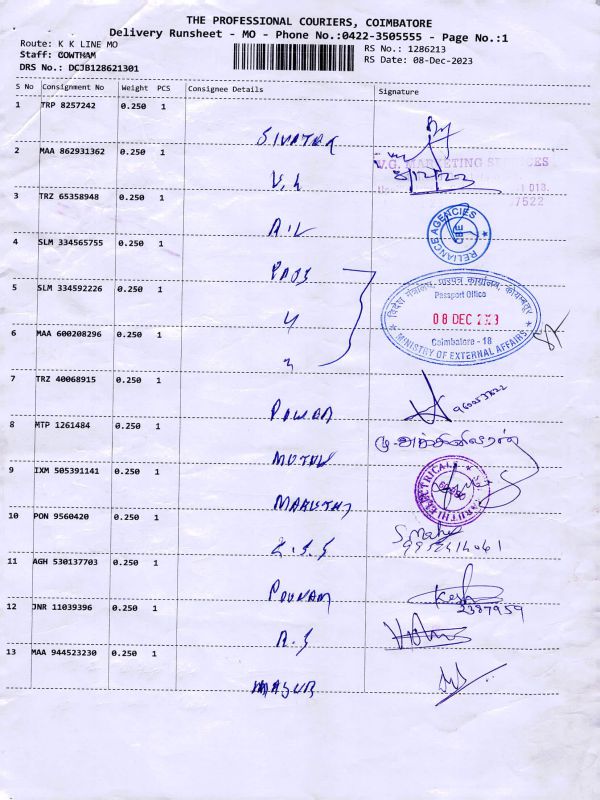 THE PROFESSIONAL COURIERS, COIMBATORE
Delivery Runsheet - MO - Phone No.:0422-3505555 - Page No.:1
Route: K K LINE MO
RS No.: 1286213
Staff: GOWTHAM
RS Date: 08-Dec-2023
DRS No.: DCJB128621301
S No Consignment No Weight PCS Consignee Details Signature
1 TRP 8257242 0.250 1
2 MAA 862931362 0.250 1
V.G. MARKETING SERVICES
8/12/23
7522
3 TRZ 65358948 0.250 1
RELIANCE AGENCIES
CBE
4 SLM 334565755 0.250 1
PASS
5 SLM 334592226 0.250 1
विदेश मंत्रालय, पारपत्र कार्यालय, कोयम्बतूर
Passport Office
08 DEC 2023
Coimbatore - 18
MINISTRY OF EXTERNAL AFFAIRS
6 MAA 600208296 0.250 1
7 TRZ 40068915 0.250 1
POWER
8 MTP 1261484 0.250 1
MUTHU
9 IXM 505391141 0.250 1
MARUTHI
10 PON 9560420 0.250 1
11 AGH 530137703 0.250 1
POUNAM
2387959
12 JNR 11039396 0.250 1
A.S
13 MAA 944523230 0.250 1